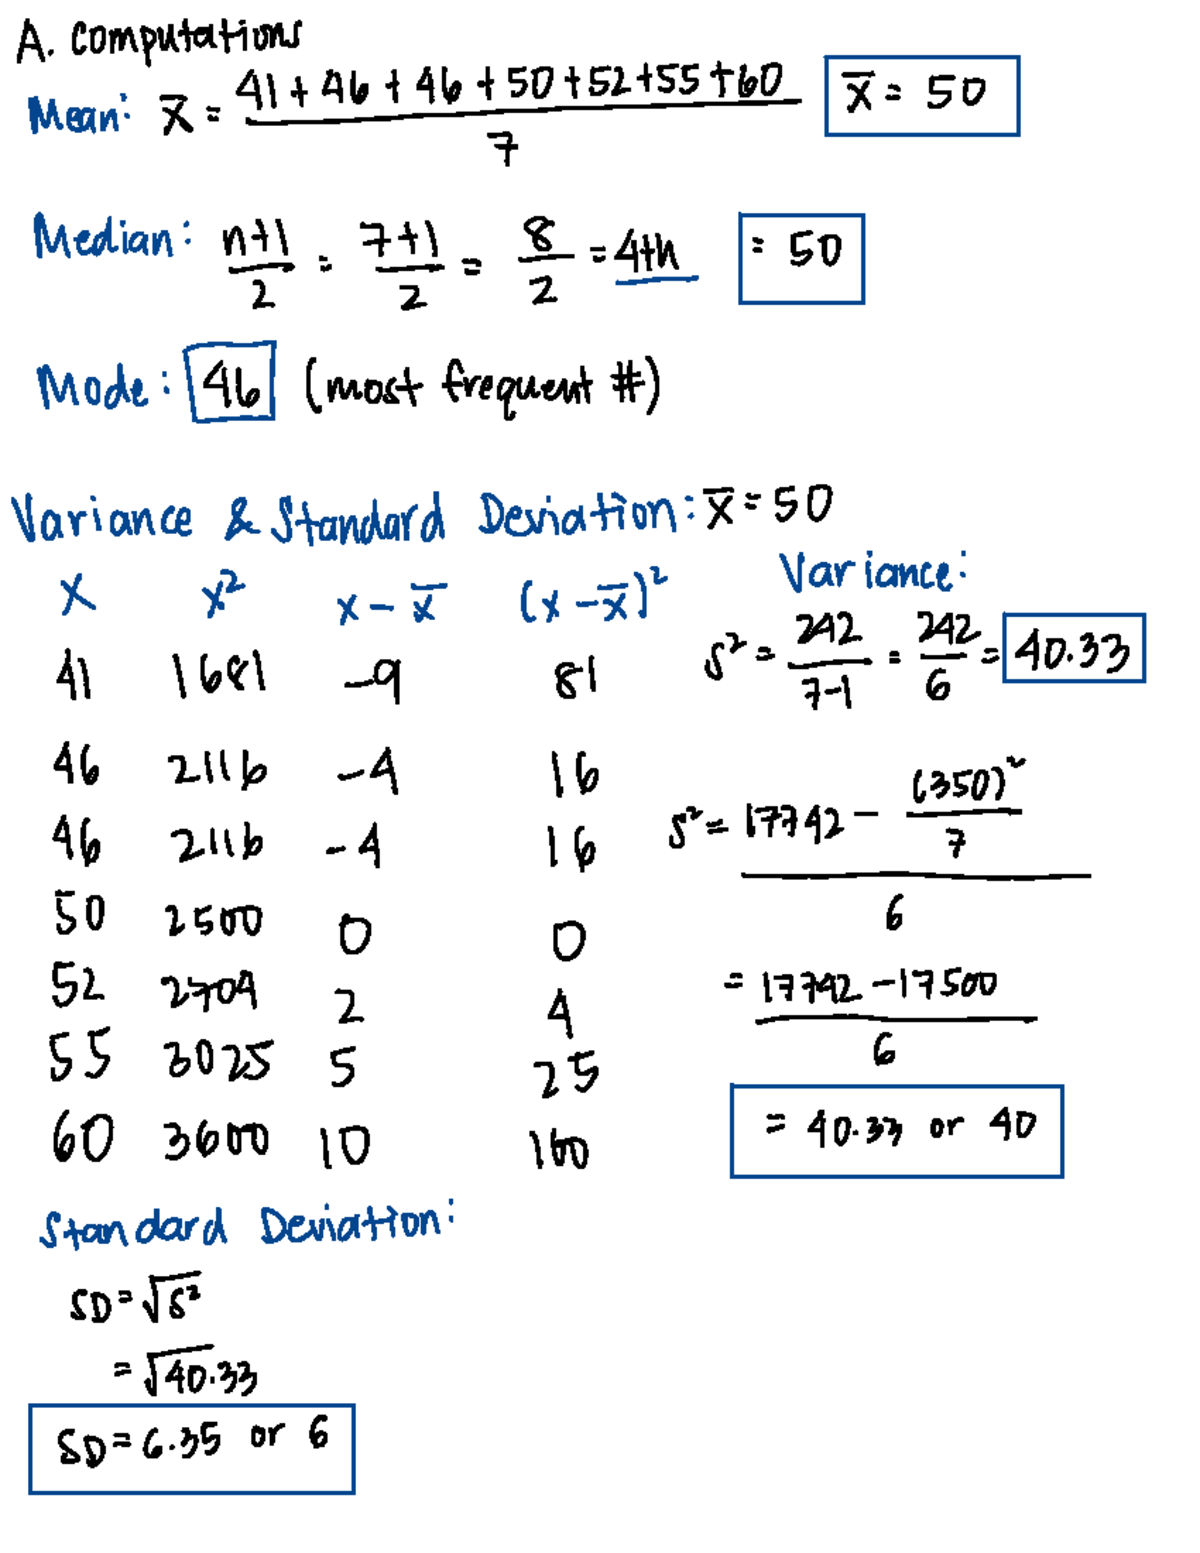 A. Computations
Mean: x̄ = (41 + 46 + 46 + 50 + 52 + 55 + 60) / 7   x̄ = 50
Median: (n+1)/2 = (7+1)/2 = 8/2 = 4th   = 50
Mode: 46 (most frequent #)
Variance & Standard Deviation: x̄ = 50
x   x²   x - x̄   (x - x̄)²
41   1681   -9   81
46   2116   -4   16
46   2116   -4   16
50   2500   0   0
52   2704   2   4
55   3025   5   25
60   3600   10   100
Variance:
s² = 242/(7-1) = 242/6 = 40.33
s² = (17742 - (350)²/7) / 6
= (17742 - 17500) / 6
= 40.33 or 40
Standard Deviation:
SD = √s²
= √40.33
SD = 6.35 or 6